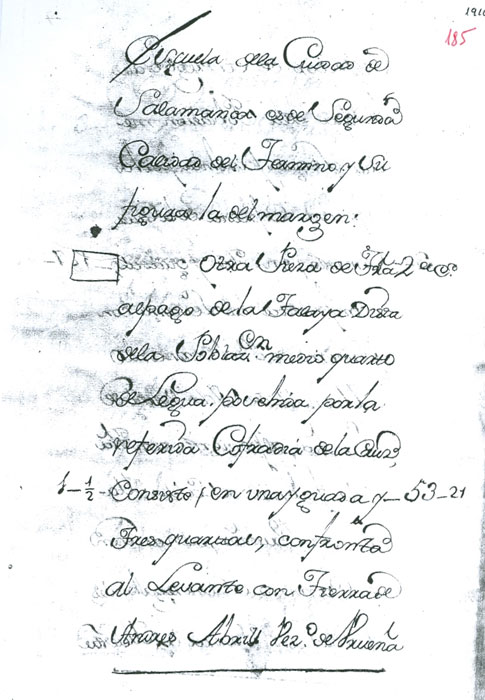 1910
185
Escuela dela Ciudad de
Salamanca es de Segunda
Calidad del Termino y su
figura la del margen:
Otra Pieza de Trra 2ª cª
al pago de la Dista
dela Poblazon medio quarto
de Legua posehida por la
referida Cofradia de la Cruz,
1-½ Consiste, en una yguada y 53-21
Tres quartas, confronta
al Levante con Tierra de
Andres Abril Vez.º de